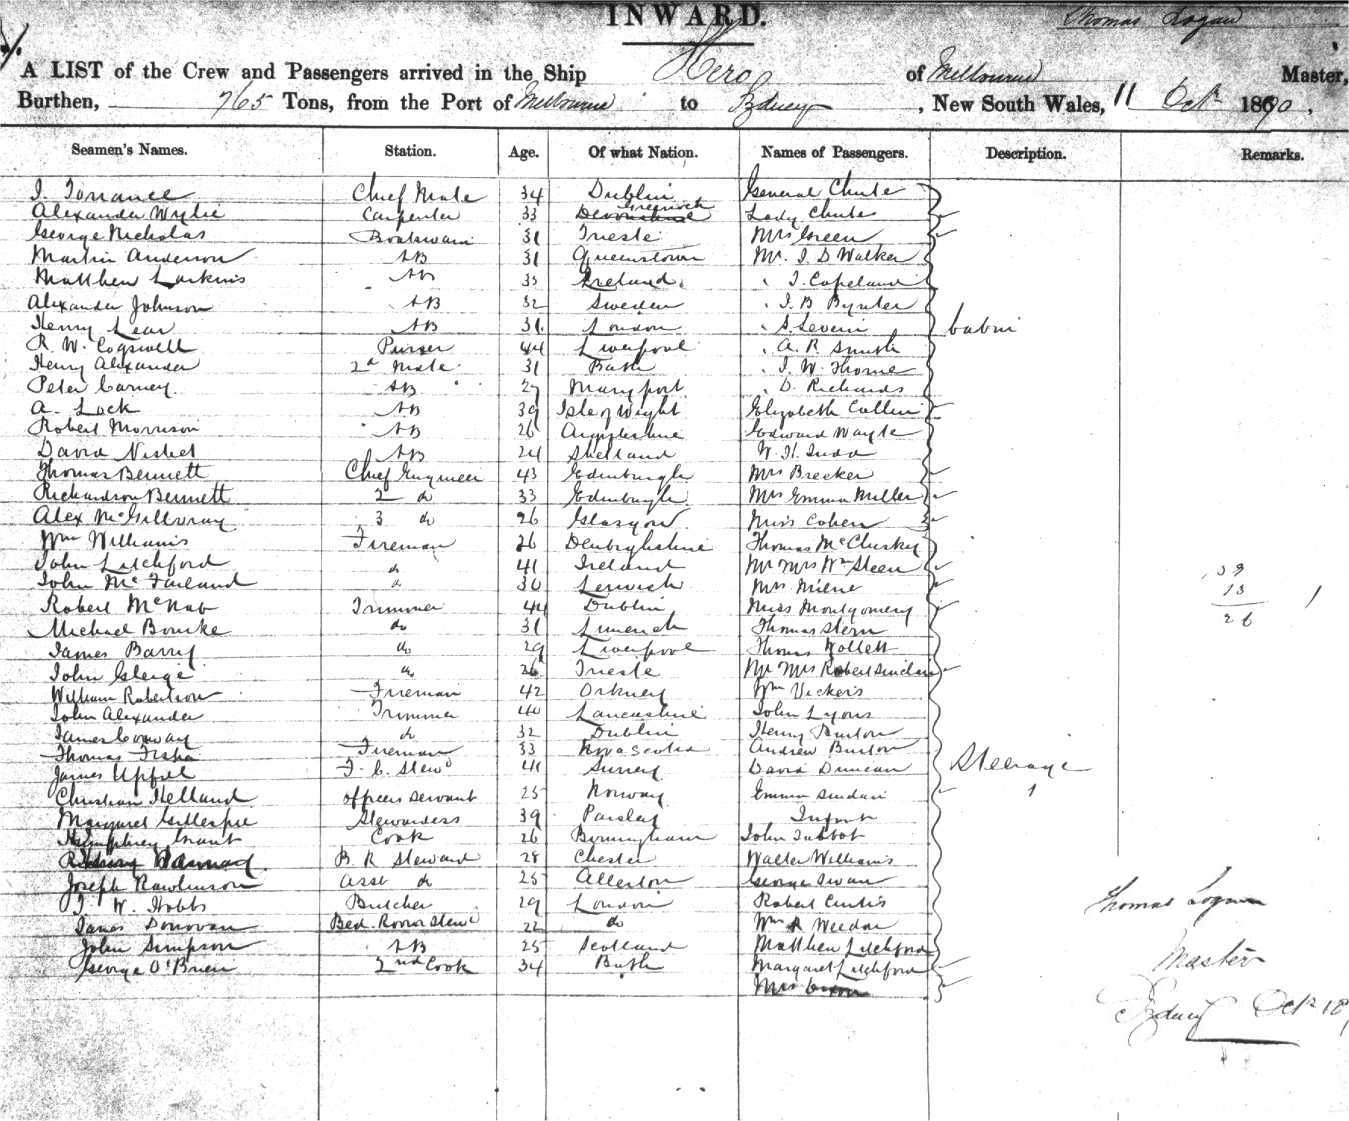 INWARD.
Thomas Logan
A LIST of the Crew and Passengers arrived in the Ship Hero of Melbourne Master,
Burthen, 765 Tons, from the Port of Melbourne to Sydney, New South Wales, 11 Oct 1870,
Seamen's Names. Station. Age. Of what Nation. Names of Passengers. Description. Remarks.
J. Torrance Chief Mate 34 Dublin General Chute
Alexander Wylie Carpenter 33 Greenock Lady Chute
George Nicholas Boatswain 31 Trieste Mrs Green
Martin Anderson AB 31 Queenstown Mr. J D Walker
Matthew Larkins AB 33 Ireland J. Copeland
Alexander Johnson AB 32 Sweden J. B
Henry Lear AB 31 London S. Severn cabin
R. W. Cogswell Purser 44 Liverpool A R Smith
Henry Alexander 2d Mate 31 Bath J. W. Thorne
Peter Carney AB 27 Maryport D. Richards
A. Lock AB 39 Isle of Wight Elizabeth Cullen
Robert Morrison AB 26 Argyleshire Edward Wayte
David Nisbet AB 24 Shetland W. H. Judd
Thomas Bennett Chief Engineer 43 Edinburgh Mrs Brecker
Richardson Bennett 2 do 33 Edinburgh Mrs Emma Miller
Alex McGillvray 3 do 26 Glasgow Miss Cohen
Wm Williams Fireman 26 Denbighshire Thomas McClusky
John Litchford do 41 Ireland Mr Mrs Wm Steen
John McFarland do 30 Lerwick Mrs Milne
39
13
26
Robert McNab Trimmer 44 Dublin Miss Montgomery
Michael Bourke do 31 Limerick Thomas Stern
James Barry do 29 Liverpool Thomas Wollett
John Gleige do 26 Trieste Mr Mrs Robert Sinclair
William Robertson Fireman 42 Orkney Wm Vickers
John Alexander Trimmer 40 Lancashire John Lyons
James Conway do 32 Dublin Henry Burton
Thomas Fisher Fireman 33 Nova Scotia Andrew Burton
James Upfel F. C. Stewd 41 Surrey David Duncan Steerage
Christian Helland officers servant 25 Norway Emma Sinclair
Margaret Gillespie Stewardess 39 Paisley Infant
Humphrey Grant Cook 26 Birmingham John Tabbot
B. R Steward 28 Chester Walter Williams
Joseph Rawlinson asst do 25 Allerton George Swan
J. W. Hobbs Butcher 29 London Robert Curtis
James Donovan Bed. Room Stewd 22 do Wm R Weedon
John Simpson AB 25 Scotland Matthew Litchford
George O'Brien 2nd Cook 34 Bath Margaret Litchford
Mrs
Thomas Logan
Master
Sydney Oct 18